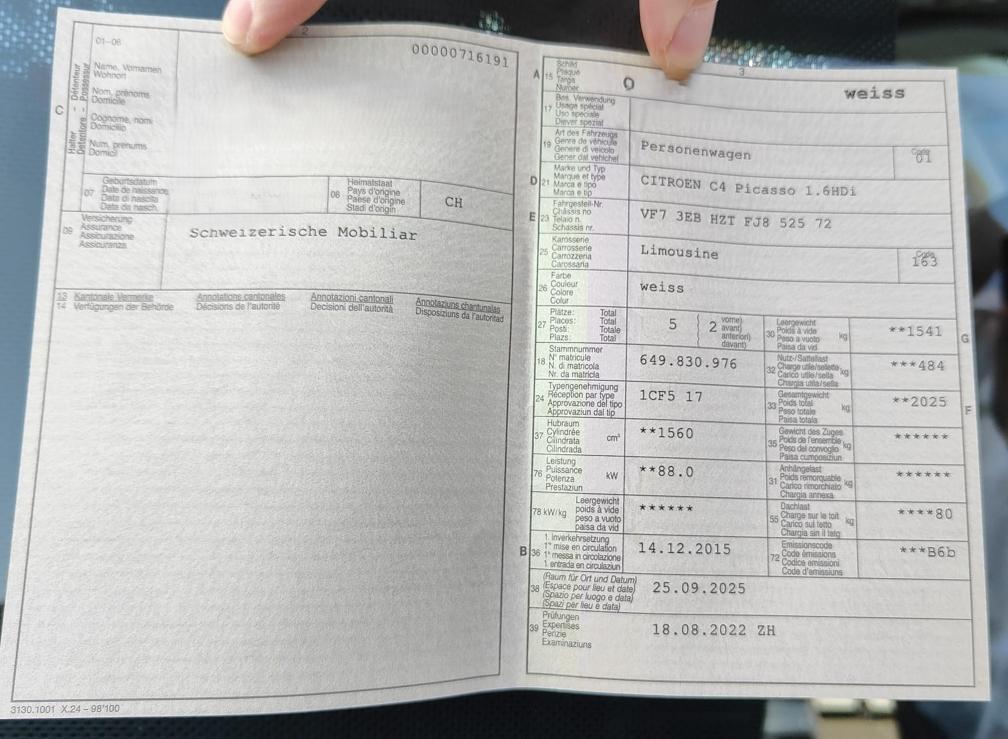 01–06
Halter – Détenteur
Detentore – Possessur
C
Name, Vornamen
Wohnort
Nom, prénoms
Domicile
Cognome, nomi
Domicilio
Num, prenums
Domicil
2
00000716191
07
Geburtsdatum
Date de naissance
Data di nascita
Data da nasch.
08
Heimatstaat
Pays d'origine
Paese d'origine
Stadi d'origin
CH
09
Versicherung
Assurance
Assicurazione
Assicuranza
Schweizerische Mobiliar
13 Kantonale Vermerke
14 Verfügungen der Behörde
Annotations cantonales
Décisions de l'autorité
Annotazioni cantonali
Decisioni dell'autorità
Annotaziuns chantunalas
Disposiziuns da l'autoritad
3130.1001 X.24 – 98'100
3
A 15
Schild
Plaque
Targa
Numer
weiss
17
Bes. Verwendung
Usage spécial
Uso speciale
Diever spezial
19
Art des Fahrzeugs
Genre de véhicule
Genere di veicolo
Gener dal vehichel
Personenwagen
Code
01
D 21
Marke und Typ
Marque et type
Marca e tipo
Marca e tip
CITROEN C4 Picasso 1.6HDi
E 23
Fahrgestell-Nr.
Châssis no
Telaio n.
Schassis nr.
VF7 3EB HZT FJ8 525 72
25
Karosserie
Carrosserie
Carrozzeria
Carossaria
Limousine
Code
163
26
Farbe
Couleur
Colore
Colur
weiss
27
Plätze: Total
Places: Total
Posti: Totale
Plazs: Total
5
2
vorne)
avant)
anteriori)
davant)
30
Leergewicht
Poids à vide
Peso a vuoto
Paisa da vid
kg
**1541
G
18
Stammnummer
N° matricule
N. di matricola
Nr. da matricla
649.830.976
32
Nutz-/Sattellast
Charge utile/sellette
Carico utile/sella
Chargia utila/sella
kg
***484
24
Typengenehmigung
Réception par type
Approvazione del tipo
Approvaziun dal tip
1CF5 17
33
Gesamtgewicht
Poids total
Peso totale
Paisa totala
kg
**2025
F
37
Hubraum
Cylindrée
Cilindrata
Cilindrada
cm³
**1560
35
Gewicht des Zuges
Poids de l'ensemble
Peso del convoglio
Paisa cumposiziun
kg
******
76
Leistung
Puissance
Potenza
Prestaziun
kW
**88.0
31
Anhängelast
Poids remorquable
Carico rimorchiato
Chargia annexa
kg
******
78 kW/kg
Leergewicht
poids à vide
peso a vuoto
paisa da vid
******
55
Dachlast
Charge sur le toit
Carico sul tetto
Chargia sin il tetg
kg
****80
B 36
1. Inverkehrsetzung
1re mise en circulation
1a messa in circolazione
1. entrada en circulaziun
14.12.2015
72
Emissionscode
Code émissions
Codice emissioni
Code d'emissiuns
***B6b
38
(Raum für Ort und Datum)
(Espace pour lieu et date)
(Spazio per luogo e data)
(Spazi per lieu e data)
25.09.2025
39
Prüfungen
Expertises
Perizie
Examinaziuns
18.08.2022 ZH